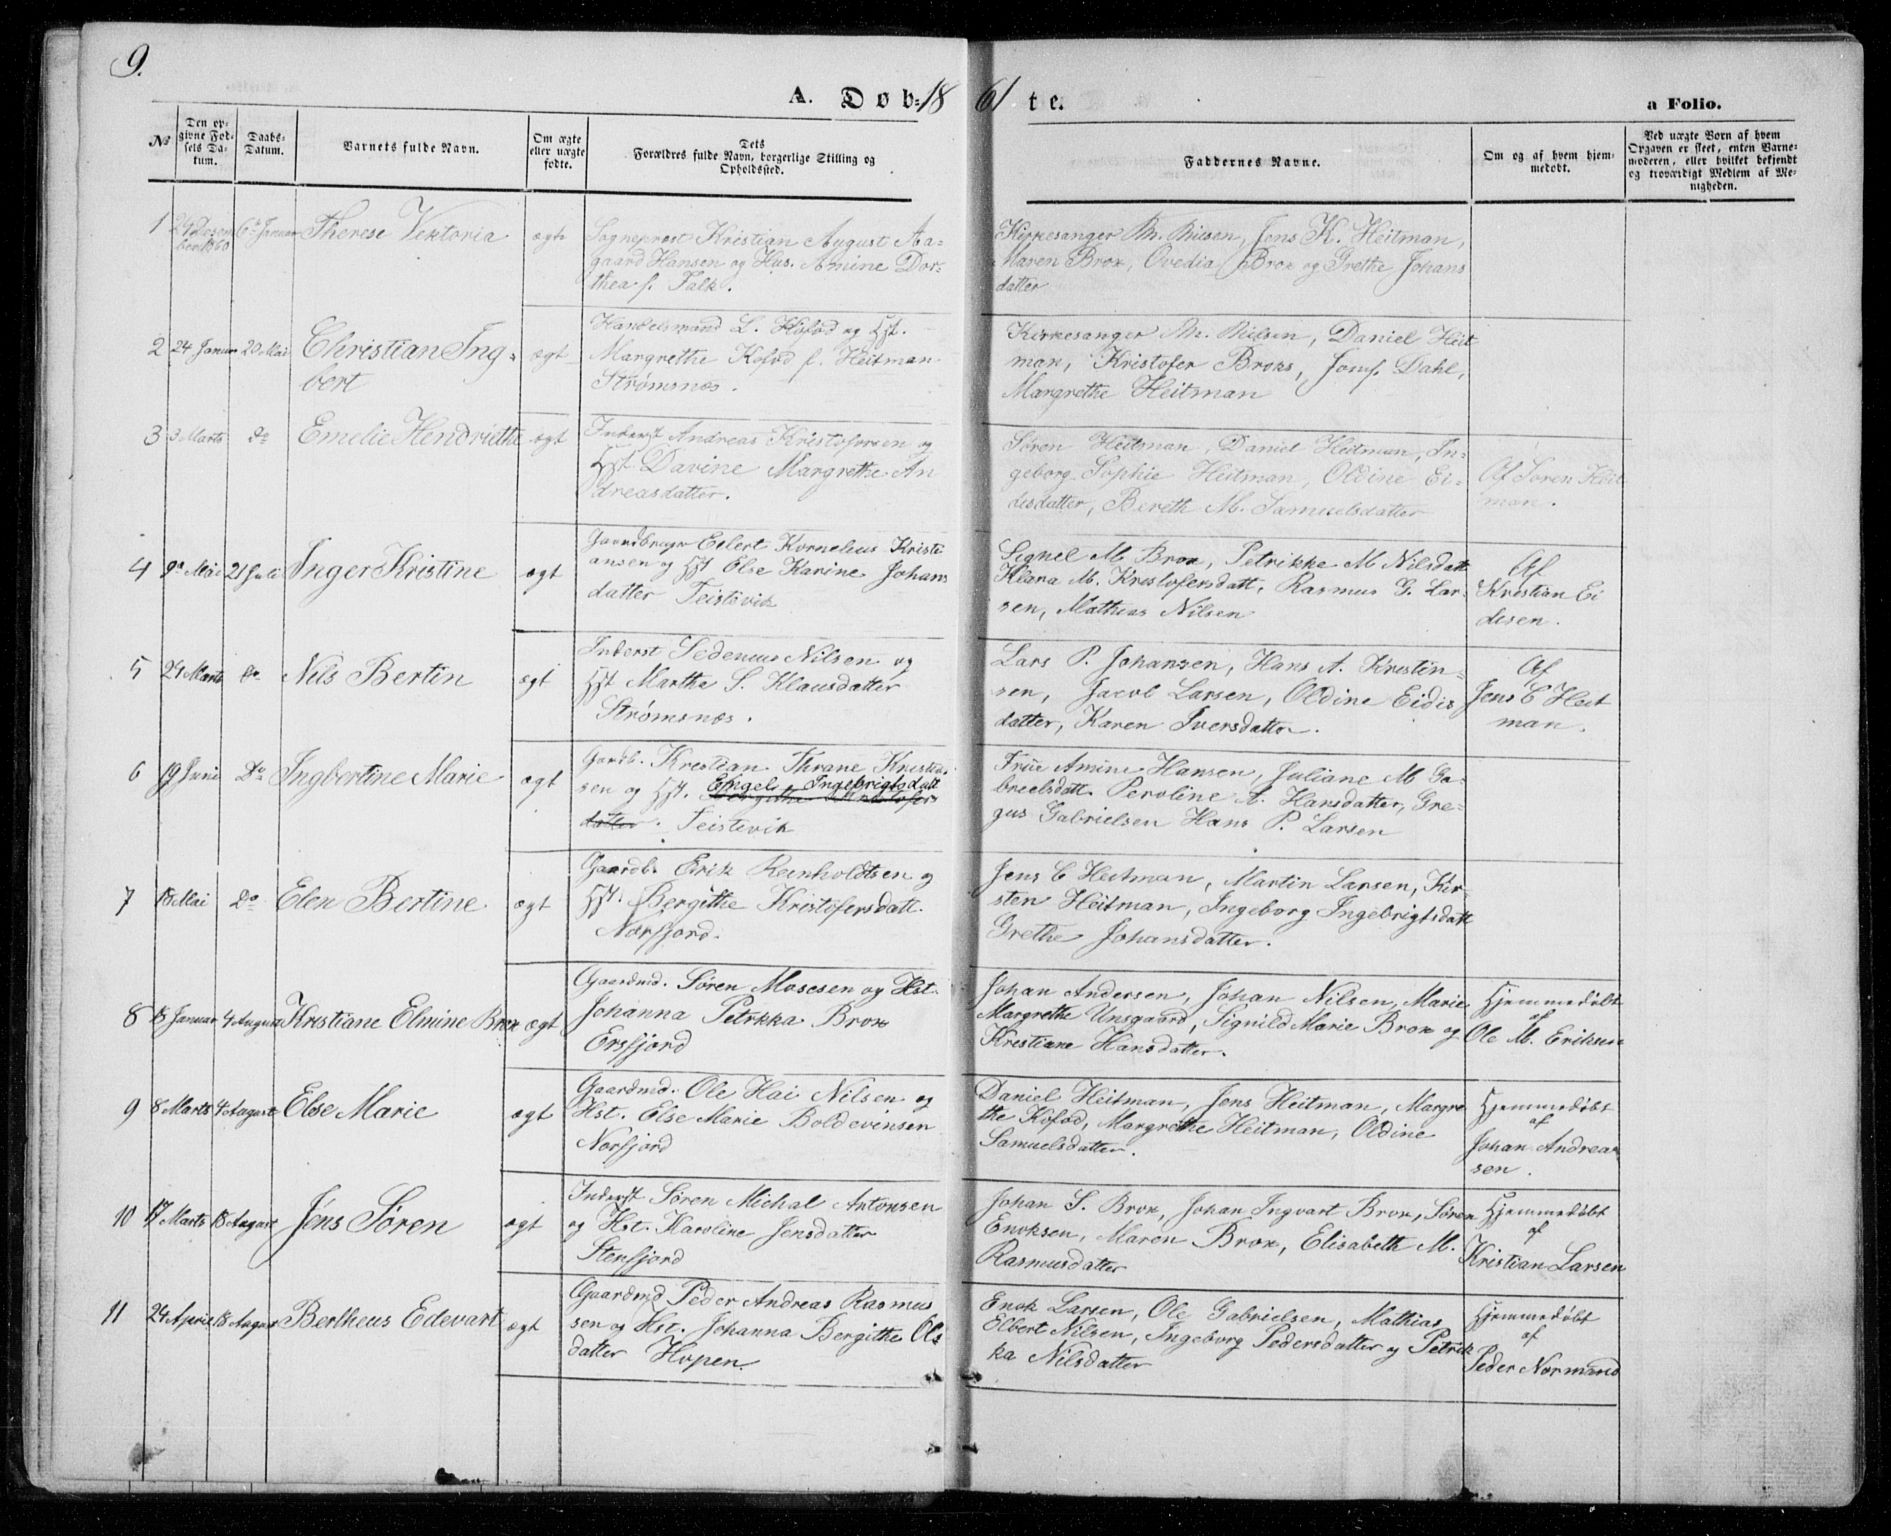 9.
A. Døb- 18 61 te.
a Folio.
No
Den op-
givne Fød-
sels Da-
tum.
Daabs-
Datum.
Barnets fulde Navn.
Om ægte
eller uægte
fødte.
Dets
Forældres fulde Navn, borgerlige Stilling og
Opholdssted.
Faddernes Navne.
Om og af hvem hjem-
medøbt.
Ved uægte Børn af hvem
Opgaven er skeet, enten Barne-
moderen, eller hvilket bekjendt
og troværdigt Medlem af Me-
nigheden.
1
24 Desem
ber 1860
6te Januar
Therese Viktoria
ægte
Sogneprest Kristian August Aa-
gaard Hansen og Hus. Amine Dor-
thea f. Falk.
Kirkesanger M. Nilsen, Jens K. Heitman,
Maren Brox, Ovedia Brox og Grethe Johans
datter
2
24 Januar
20 Mai
Christian Ing-
bert
ægt
Handelsmand L. Kofod og Hst.
Margrethe Kofod f. Heitman
Strømsnæs.
Kirkesanger M. Nilsen, Daniel Heit
man, Kristofer Broks, Josef Dahl,
Margrethe Heitman
3
3 Marts
do
Emelie Hendriethe
ægt
Inderst Andreas Kristofersen og
Hst Davine Margrethe An
dreasdatter.
Søren Heitman, Daniel Heitman, In-
geborg Sophie Heitman, Oldine Ei-
disdatter, Bereth M. Samuelsdatter
Af Søren Heit
man.
4
9de Mai
21 Juli
Inger Kristine
ægt
Gaardbruger Eilert Kornelius Kristi
ansen og Hst Olse Karine Johans
datter Teistevik
Signel M Brox, Petrikke M Nilsdatt
Klara M. Kristofersdatt, Rasmus G. Lar-
sen, Mathias Nilsen
Af
Kristian Ei
disen.
5
24 Marts
do
Nils Bertin
ægt
Inderst Sedenius Nilsen og
Hst Marthe S. Klausdatter
Strømsnæs.
Lars P. Johansen, Hans A. Kristin-
sen, Jacob Larsen, Oldine Eidis
datter, Karen Iversdatter.
Af
Jens C Heit
man.
6
19 Juni
Do
Ingbertine Marie
ægt
Gaardb. Kristian Thrane Kristian-
sen og Hst. Engel Ingebrigtsdatt
datter. Teistevik
Frue Amine Hansen, Juliane M Ga-
brielsdatt. Peroline A. Hansdatter, Gre-
gus Gabrielsen Hans P. Larsen
7
18 Mai
Do
Elen Bertine
ægt
Gaardb. Erik Reinholdtsen og
Hst. Bergithe Kristofersdatt.
Norfjord.
Jens C Heitman, Martin Larsen, Kir-
sten Heitman, Ingeborg Ingebrigtsdatt
Grethe Johansdatter.
8
15 Januar
4 August
Kristiane Elmine Brox
ægt
Gaardmd. Søren Mosesen og Hst.
Johanna Petrkka Brox
Ersfjord
Johan Andersen, Johan Nilsen, Marie
Margrethe Unsgaard, Signild Marie Brox og
Kristiane Hansdatter.
Hjemmedøbt
af
Ole M. Eriksen
9
8 Marts
4 August
Else Marie
ægt
Gaardmd. Ole Hai Nilsen og
Hst. Else Marie Boldevinsen
Norfjord
Daniel Heitman, Jens Heitman, Margre
the Kofod, Margrethe Heitman, Oldine
Samuelsdatter.
Hjemmedøbt
af
Johan Andrea-
sen.
10
17 Marts
18 August
Jens Søren
ægt
Inderst Søren Michal Antonsen
og Hst. Karoline Jensdatter
Stenfjord
Johan S. Brox, Johan Ingvart Brox, Søren
Enoksen, Maren Brox, Elisabeth M.
Rasmusdatter
Hjemmedøbt
af
Kristian Larsen
11
24 April
18 August
Bertheus Edevart
ægt
Gaardmd Peder Andreas Rasmus
sen og Hst. Johanna Bergithe Ols
datter Hopen
Enok Larsen, Ole Gabrielsen, Mathias
Elbert Nilsen, Ingeborg Pedersdatter og Petrik
ka Nilsdatter
Hjemmedøbt
af
Peder Normand